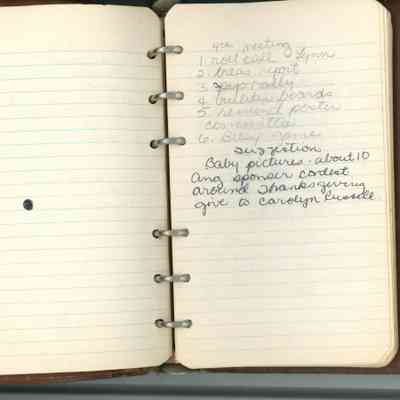 4th meeting
1. roll call - Lynn
2. treas report
3. pep rally
4. bulletin boards
5. removal poster
committee
6. Bradley game
Suggestion
Baby pictures - about 10
Ang sponsor contest
around Thanksgiving
give to Carolyn Russell